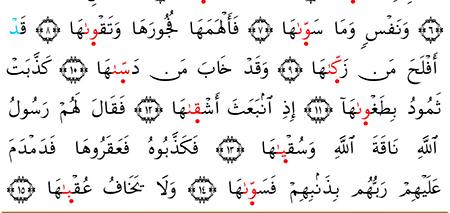 ﴿٦﴾ وَنَفْسٍ وَمَا سَوَّىٰهَا ﴿٧﴾ فَأَلْهَمَهَا فُجُورَهَا وَتَقْوَىٰهَا ﴿٨﴾ قَدْ
أَفْلَحَ مَن زَكَّىٰهَا ﴿٩﴾ وَقَدْ خَابَ مَن دَسَّىٰهَا ﴿١٠﴾ كَذَّبَتْ
ثَمُودُ بِطَغْوَىٰهَآ ﴿١١﴾ إِذِ ٱنۢبَعَثَ أَشْقَىٰهَا ﴿١٢﴾ فَقَالَ لَهُمْ رَسُولُ
ٱللَّهِ نَاقَةَ ٱللَّهِ وَسُقْيَـٰهَا ﴿١٣﴾ فَكَذَّبُوهُ فَعَقَرُوهَا فَدَمْدَمَ
عَلَيْهِمْ رَبُّهُم بِذَنۢبِهِمْ فَسَوَّىٰهَا ﴿١٤﴾ وَلَا يَخَافُ عُقْبَـٰهَا ﴿١٥﴾